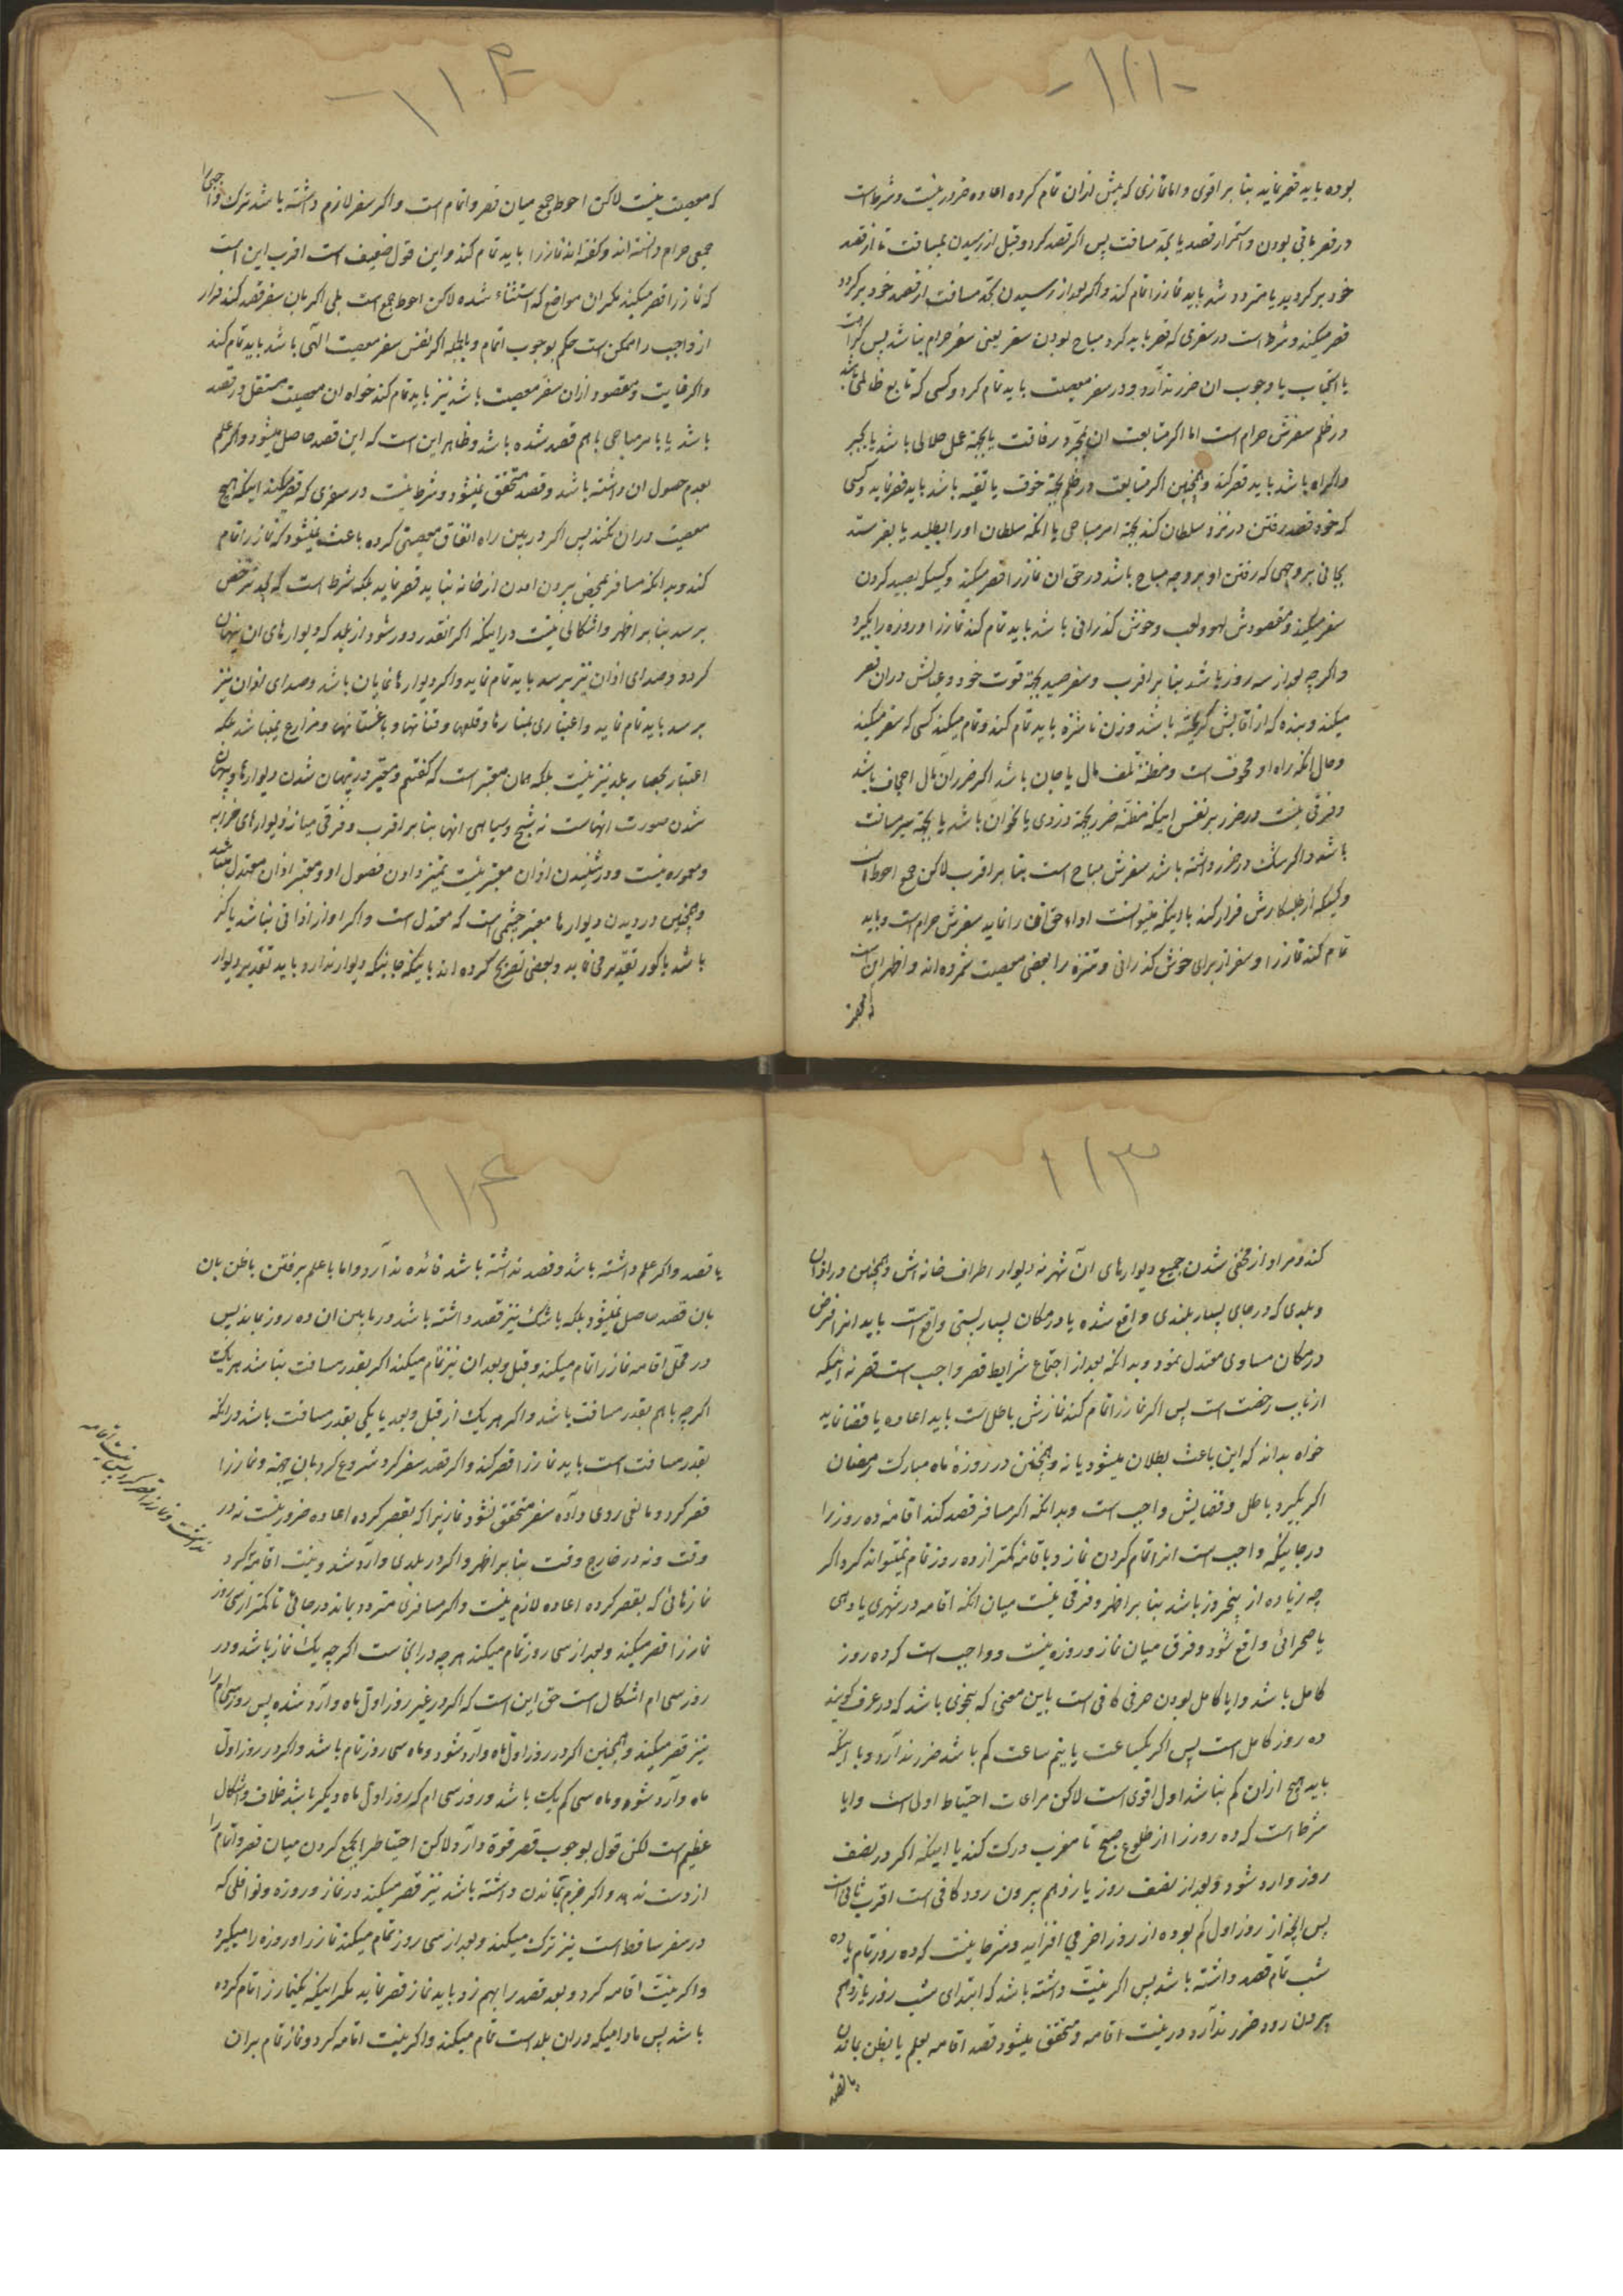 -۱۱۱-
بوده باید قصر نماید بنا بر اقوی و اما نمازی که پیش ازان تمام کرده اعاده ضرور نیست و شرط است
در قصر باقی بودن و استمرار قصد یا بحد مسافت پس اکر قصد کرد و قبل از رسیدن بمسافت تا از قصد
خود برکردید یا متردد شد باید نماز را تمام کند و اکر بعد از رسیدن بحد مسافت از قصد خود برکردد
قصر میکند و شرط است در سفری که قصر باید کرد مباح بودن سفر یعنی سفر حرام نباشد پس کراهت
یا استحباب یا وجوب ان ضرر ندارد و در سفر معصیت باید تمام کرد و کسی که تابع ظالمی باشد
در ظلم سفرش حرام است اما اکر متابعت ان بمجرد رفاقت یا بجهة عمل حلالی باشد یا بجبر
و اکراه باشد باید قصر کند و همچنین اکر متابعت در ظلم بجهة خوف یا تقیه باشد باید قصر نماید و کسی
که خود قصد رفتن در نزد سلطان کند بجهة امر مباحی یا انکه سلطان او را بطلبد یا بفرستد
بجائی بر وجهی که رفتن او بر وجه مباح باشد در حق ان نماز را قصر میکند و کسیکه بصید کردن
سفر میکند و مقصودش لهو و لعب و خوش کذرانی باشد باید تمام کند نماز را و روزه را بکیرد
و اکرچه بعد از سه روز باشد بنا بر اقرب و سفر صید بجهة قوت خود و عیالش دران قصر
میکند و بنده که از اقایش کریخته باشد و زن ناشزه باید تمام کند و تمام میکند کسی که سفر میکند
و حال انکه راه او مخوف است و مظنه تلف مال یا جان باشد اکر ضرران مال اجحاف باشد
و فرقی نیست در ضرر بر نفس اینکه مظنه ضرر بجهة دزدی یا نحو ان باشد یا بجهة سیر مسافت
باشد و اکر شک در ضرر داشته باشد سفرش مباح است بنا بر اقرب لاکن جمع احوط است
و کسیکه از طلبکارش فرار کند با اینکه میتوانست اداء حق ان را نماید سفرش حرام است و باید
تمام کند نماز را و سفر از برای خوش کذرانی و تنزه را بعضی معصیت شمرده اند و اظهر ان است
که معصیت نیست لاکن احوط جمع میان قصر و اتمام است و اکر سفر لازم داشته باشد ترک واجبی را
جمعی حرام دانسته اند و کفته اند نماز را باید تمام کند و این قول ضعیف است اقرب این است
که نماز را قصر میکند مکر ان مواضع که استثناء شده لاکن احوط جمع است بلی اکر بان سفر قصد کند فرار
از واجب را ممکن است حکم بوجوب اتمام و بالجمله اکر نفس سفر معصیت الهی باشد باید تمام کند
و اکر غایت و مقصود ازان سفر معصیت باشد نیز باید تمام کند خواه ان معصیت مستقل در قصد
باشد یا با امر مباحی با هم قصد شده باشد و ظاهر این است که این قصد حاصل میشود و اکر علم
بعدم حصول ان داشته باشد و قصد متحقق نمیشود و شرط نیست در سفری که قصر میکند اینکه هیچ
معصیت دران نکند پس اکر در بین راه اتفاق معصیتی کرده باعث نمیشود که نماز را تمام
کند و بدانکه مسافر بمحض بیرون امدن از خانه نباید قصر نماید بلکه شرط است که بحد ترخص
برسد بنا بر اظهر و اشکالی نیست در اینکه اکر انقدر دور شود از بلد که دیوارهای ان پنهان
کردد و صدای اذان نیز نرسد باید تمام نماید و اکر دیوارها نمایان باشد و صدای اذان نیز
برسد باید تمام نماید و اعتباری بمنارها و قلعها و قناتها و باغستانها و مزارع نمیباشد بلکه
اعتبار بحصار بلد نیز نیست بلکه همان معتبر است که کفتیم و معتبر در پنهان شدن دیوارها پنهان
شدن صورت انهاست نه شبح و سیاهی انها بنا بر اقرب و فرقی میانه دیوارهای خرابه
و معموره نیست و در شنیدن اذان معتبر نیست تمیز دادن فصول او و معتبر اذان معتدل میباشد
و همچنین در دیدن دیوارها معتبر چشمی است که معتدل است و اکر اواز اذانی نباشد یا کر
باشد یا کور تقدیر می نماید و بعضی تصریح کرده اند باینکه جائیکه دیوار ندارد باید تقدیر دیوار
۱۱۳
کند و مراد از مخفی شدن جمیع دیوارهای ان شهر نه دیوار اطراف خانه اش و همچنین در اذان
و بلدی که در جای بسیار بلندی واقع شده یا در مکان بسیار پستی واقع است باید انرا فرض
در مکان مساوی معتدل نمود و بدانکه بعد از اجتماع شرایط قصر واجب است قصر نه اینکه
از باب رخصت است پس اکر نماز را تمام کند نمازش باطل است باید اعاده یا قضا نماید
خواه بداند که این باعث بطلان میشود یا نه و همچنین در روزهٔ ماه مبارک رمضان
اکر بکیرد باطل و قضایش واجب است و بدانکه اکر مسافر قصد کند اقامه ده روز را
در جائیکه واجب است انرا تمام کردن نماز و با قامه کمتر از ده روز تمام نمیتواند کرد اکر
چه زیاده از پنجروز باشد بنا بر اظهر و فرقی نیست میان انکه اقامه در شهری یا دهی
یا صحرائی واقع شود و فرق میان نماز و روزه نیست و واجب است که ده روز
کامل باشد و ایا کامل بودن عرفی کافی است باین معنی که بنحوی باشد که در عرف کویند
ده روز کامل است پس اکر یکساعت یا نیم ساعت کم باشد ضرر ندارد و یا اینکه
باید هیچ ازان کم نباشد اول اقوی است لاکن مراعات احتیاط اولی است و ایا
شرط است که ده روز را از طلوع صبح تا مغرب درک کند یا اینکه اکر در نصف
روز وارد شود و بعد از نصف روز یازدهم بیرون رود کافی است اقرب ثانی است
پس انچه از روز اول کم بوده از روز اخر می افزاید و شرط نیست که ده روز تمام با ده
شب تمام قصد داشته باشد پس اکر نیت داشته باشد که ابتدای شب روز یازدهم
بیرون رود ضرر ندارد در نیت اقامه و متحقق میشود قصد اقامه بعلم یا بظن بماندن
۱۱۴
یا قصد و اکر علم داشته باشد و قصد نداشته باشد فائده ندارد و اما با علم برفتن با ظن بان
بان قصد حاصل نمیشود بلکه با شک نیز قصد داشته باشد در ما بین ان ده روز بماند پس
در محل اقامه نماز را تمام میکند و قبل و بعد ان نیز تمام میکند اکر بقدر مسافت نباشد هر یک
اکرچه با هم بقدر مسافت باشد و اکر هر یک از قبل و بعد یا یکی بقدر مسافت باشد در انکه
بقدر مسافت است باید نماز را قصر کند و اکر قصد سفر کرد و شروع کرد بان جهة و نماز را
قصر کرد و مانعی روی داد که سفر متحقق نشود نمازیرا که بقصر کرده اعاده ضرور نیست نه در
وقت و نه در خارج وقت بنا بر اظهر و اکر در بلدی وارد شد و نیت اقامه کرد
نمازهائی که بقصر کرده اعاده لازم نیست و اکر مسافری متردد بماند در جائی تا کمتر از سی روز
نماز را قصر میکند و بعد از سی روز تمام میکند هرچه در انجاست اکرچه یک نماز باشد و در
روز سی ام اشکال است حق این است که اکر در غیر روز اول ماه وارد شده پس روز سی ام را
نیز قصر میکند و همچنین اکر در روز اول ماه وارد شود و ماه سی روز تمام باشد و اکر در روز اول
ماه وارد شود و ماه سی کم یک باشد و روز سی ام که روز اول ماه دیکر باشد خلاف و اشکال
عظیم است لکن قول بوجوب قصر قوة دارد ولاکن احتیاط را بجمع کردن میان قصر و اتمام را
از دست ندهد و اکر جزم بماندن داشته باشد نیز قصر میکند در نماز و روزه و نوافلی که
در سفر ساقط است نیز ترک میکند و بعد از سی روز تمام میکند نماز را و روزه را میکیرد
و اکر نیت اقامه کرد و بعد قصد را بهم زد باید نماز قصر نماید مکر اینکه یکنماز را تمام کرده
باشد پس مادامیکه دران بلد است تمام میکند و اکر نیت اقامه کرد و نماز تمام بران